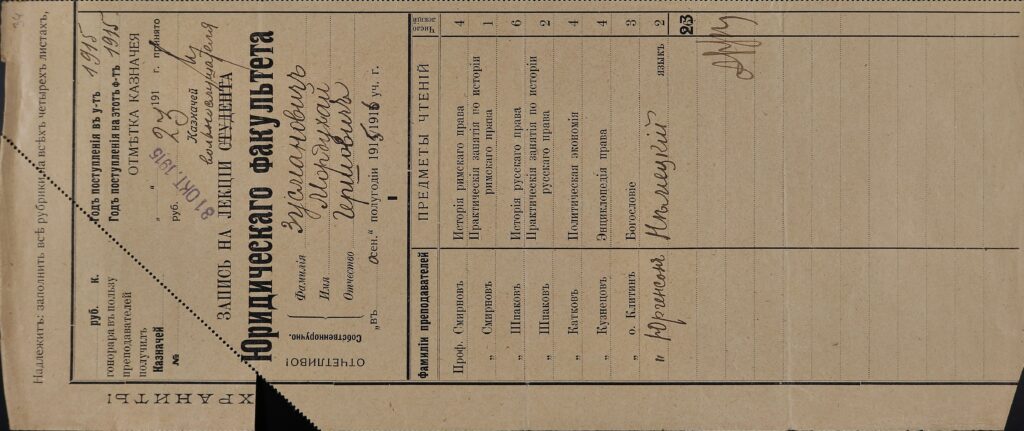 Надлежитъ: заполнить всѣ рубрики на всѣхъ четырехъ листахъ,
ХРАНИТЬ!
руб. к.
гонорара въ пользу
преподавателей
получилъ
Казначей
№
Годъ поступленія въ у-тъ 1915
Годъ поступленія на этотъ ф-тъ 1915
ОТМѢТКА КАЗНАЧЕЯ
„ “ 191 г. принято
руб. 25
Казначей
81 ОКТ. 1915
ЗАПИСЬ НА ЛЕКЦИИ СТУДЕНТА
вольнослушателя
Юридическаго факультета
ОТЧЕТЛИВО!
Собственноручно.
Фамилія Зусмановичъ
Имя Мордухай
Отчество Гершовичъ
„въ осен.“ полугодіи 1915/1916 уч. г.
Фамиліи преподавателей ПРЕДМЕТЫ ЧТЕНІЙ Число лекцій
Проф. Смирновъ Исторія римскаго права 4
„ Смирновъ Практическія занятія по исторіи римскаго права 1
„ Шпаковъ Исторія русскаго права 6
„ Шпаковъ Практическія занятія по исторіи русскаго права 2
„ Катковъ Политическая экономія 4
„ Кузнецовъ Энциклопедія права 4
„ о. Клитинъ Богословіе 3
„ Юргенсонъ Нѣмецкій языкъ 2
23